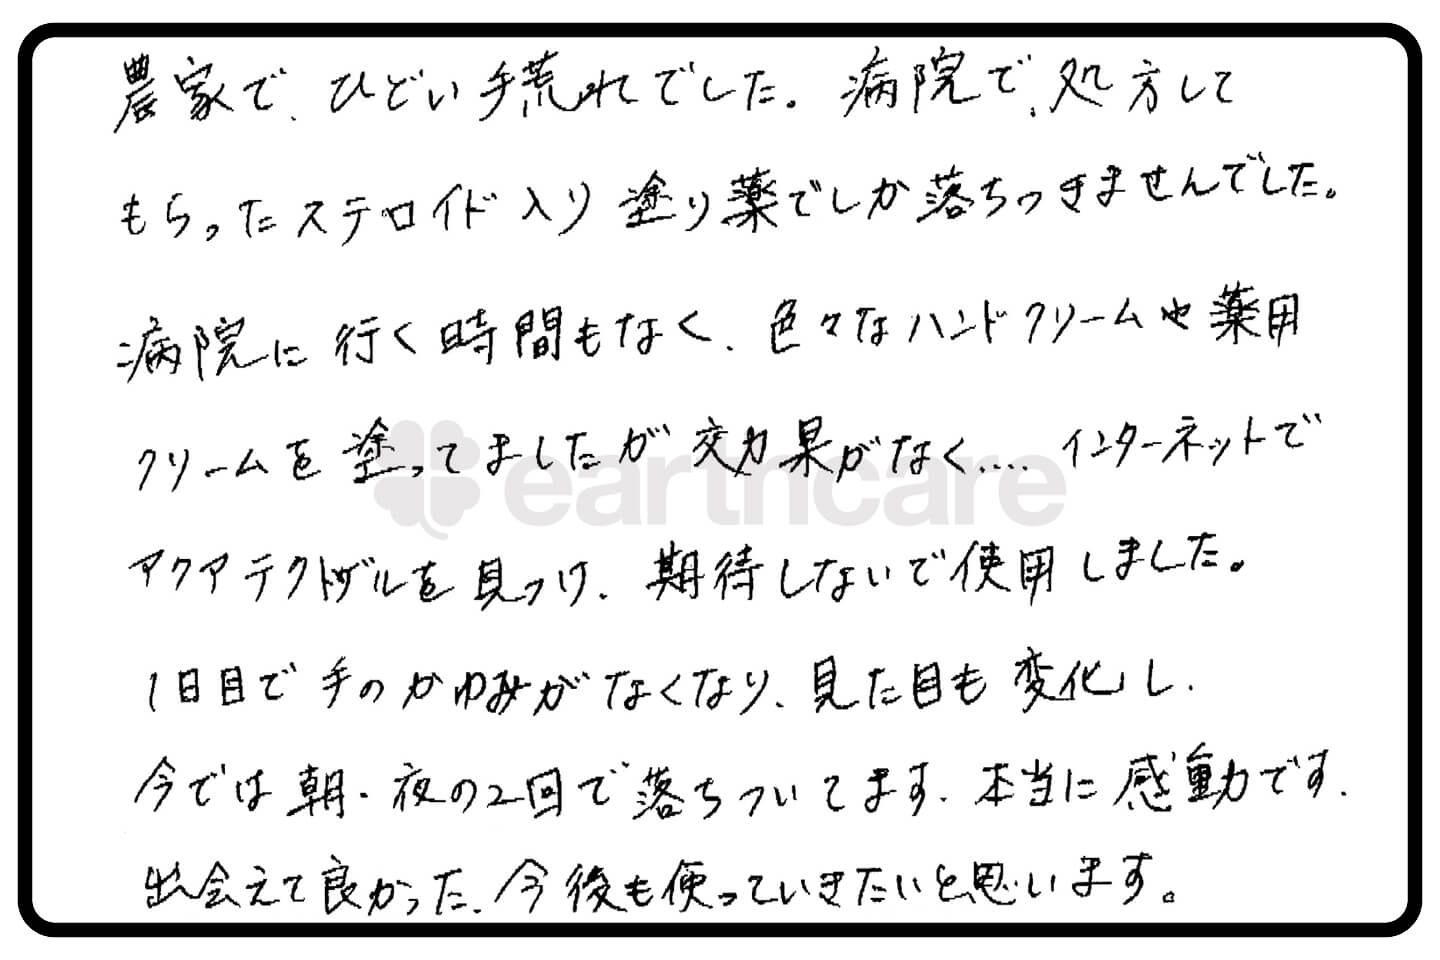 農家で、ひどい手荒れでした。病院で、処方して
もらったステロイド入り塗り薬でしか落ちつきませんでした。
病院に行く時間もなく、色々なハンドクリームや薬用
クリームを塗ってましたが効果がなく.... インターネットで
earthcare
アクアテクトゲルを見つけ、期待しないで使用しました。
1日目で手のかゆみがなくなり、見た目も変化し、
今では朝・夜の2回で落ちついてます、本当に感動です、
出会えて良かった、今後も使っていきたいと思います。